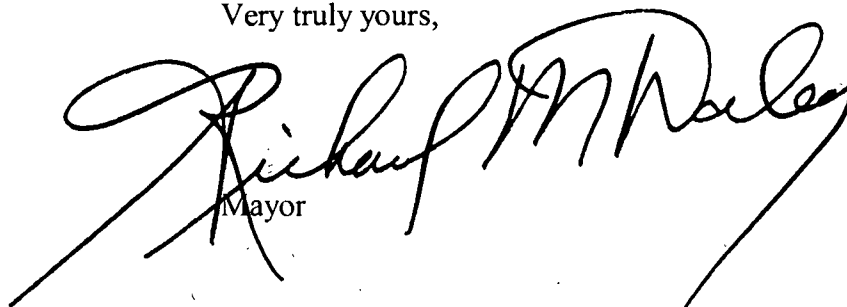 Very truly yours,
Richard M Daley
Mayor